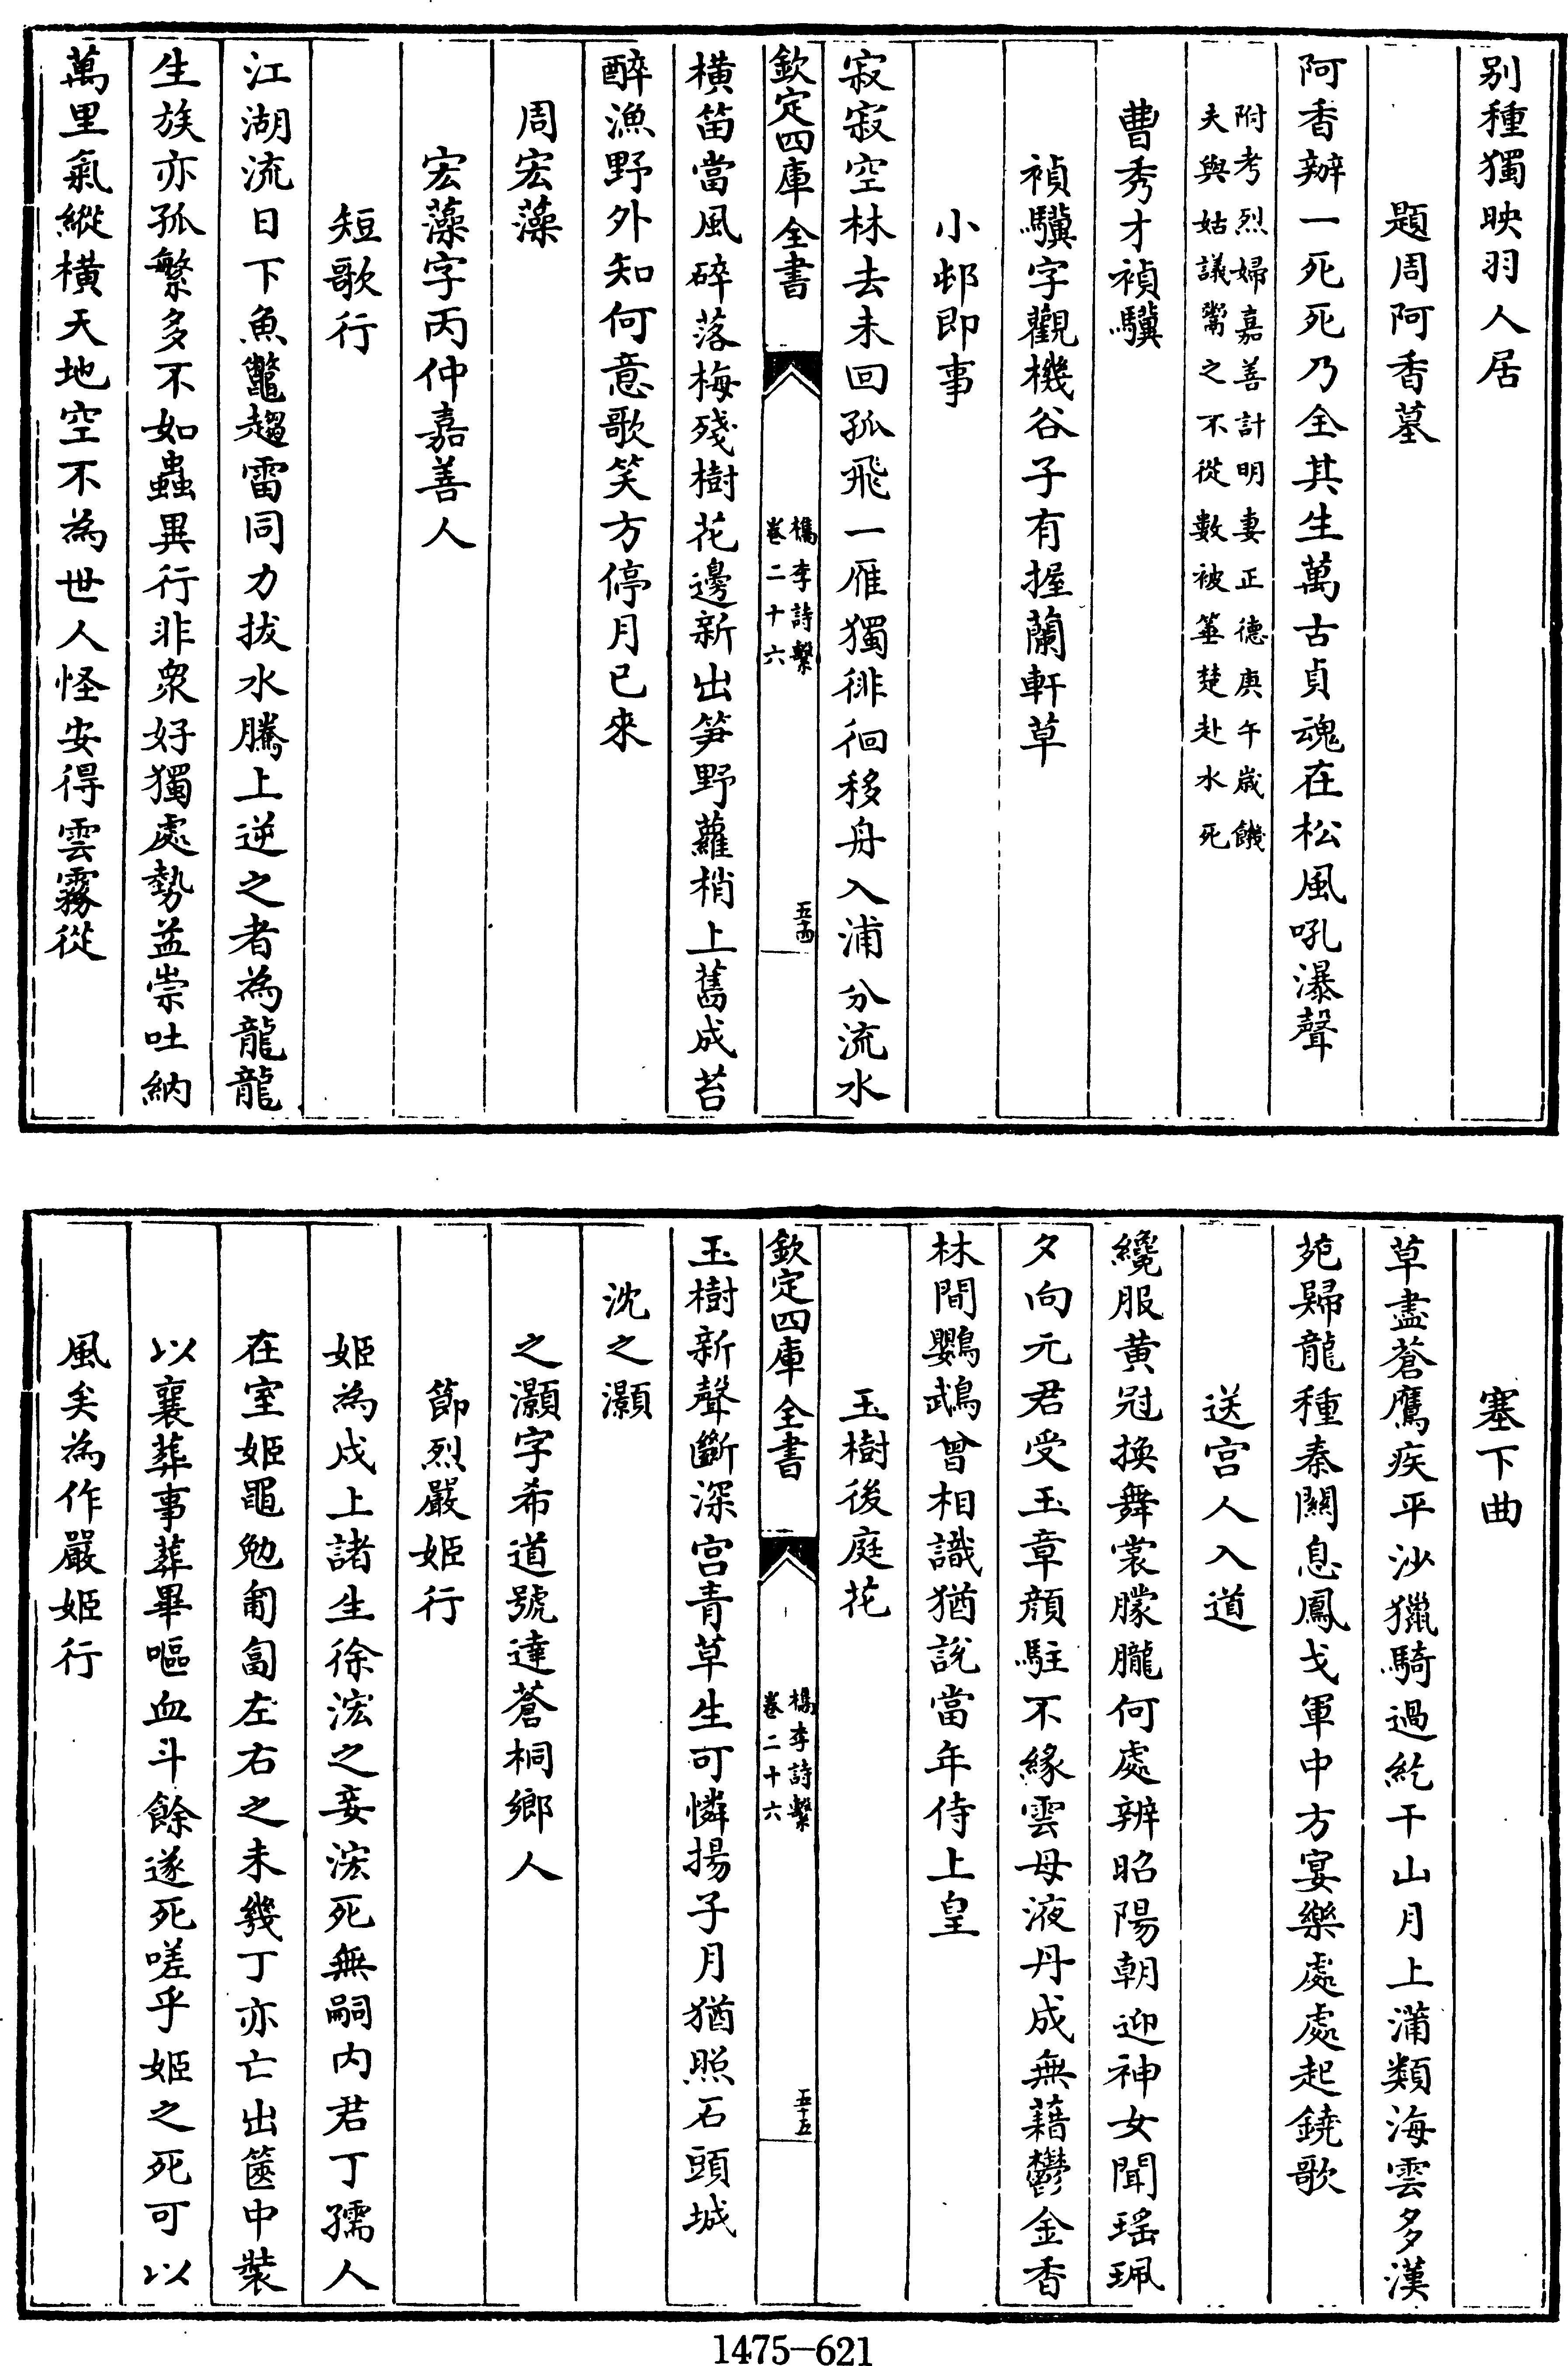 别種獨映羽人居
題周阿香墓
阿香辦一死死乃全其生萬古貞魂在松風吼瀑聲
附考烈婦嘉善計明妻正德庚午歲饑
夫與姑議鬻之不從數被箠楚赴水死
曹秀才禎驥
禎驥字觀機谷子有握蘭軒草
小邨即事
寂寂空林去未回孤飛一雁獨徘徊移舟入浦分流水
欽定四庫全書
檇李詩繫
卷二十六
五十四
橫笛當風碎落梅殘樹花邊新出笋野蘿梢上舊成苔
醉漁野外知何意歌笑方停月已來
周宏藻
宏藻字丙仲嘉善人
短歌行
江湖流日下魚鼈趨雷同力拔水騰上逆之者為龍龍
生族亦孤繁多不如蟲異行非衆好獨處勢益崇吐納
萬里氣縱橫天地空不為世人怪安得雲霧從
塞下曲
草盡蒼鷹疾平沙獵騎過紇干山月上蒲類海雲多漢
苑歸龍種秦關息鳳戈軍中方宴樂處處起鐃歌
送宮人入道
纔服黃冠換舞裳朦朧何處辨昭陽朝迎神女聞瑤珮
夕向元君受玉章顏駐不緣雲母液丹成無藉鬱金香
林間鸚鵡曾相識猶說當年侍上皇
玉樹後庭花
欽定四庫全書
檇李詩繫
卷二十六
五十五
玉樹新聲斷深宮青草生可憐揚子月猶照石頭城
沈之灝
之灝字希道號達蒼桐鄉人
節烈嚴姬行
姬為戍上諸生徐浤之妾浤死無嗣內君丁孺人
在室姬黽勉匍匐左右之未幾丁亦亡出篋中裝
以襄葬事葬畢嘔血斗餘遂死嗟乎姬之死可以
風矣為作嚴姬行
1475-621